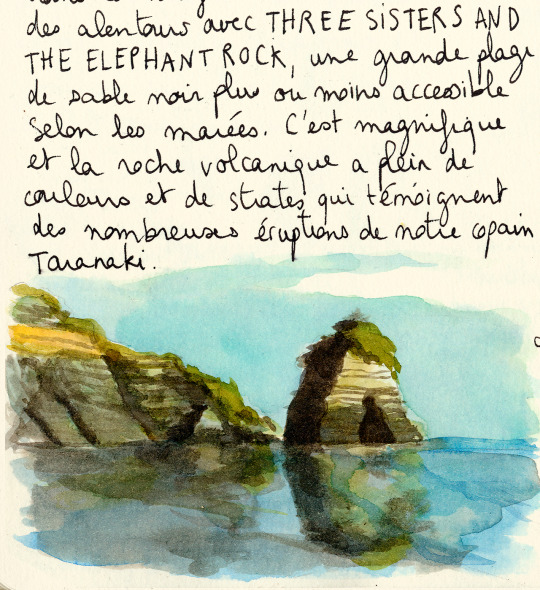 des alentours avec THREE SISTERS AND
THE ELEPHANT ROCK, une grande plage
de sable noir plus ou moins accessible
selon les marées. C'est magnifique
et la roche volcanique a plein de
couleurs et de strates qui témoignent
des nombreuses éruptions de notre copain
Taranaki.